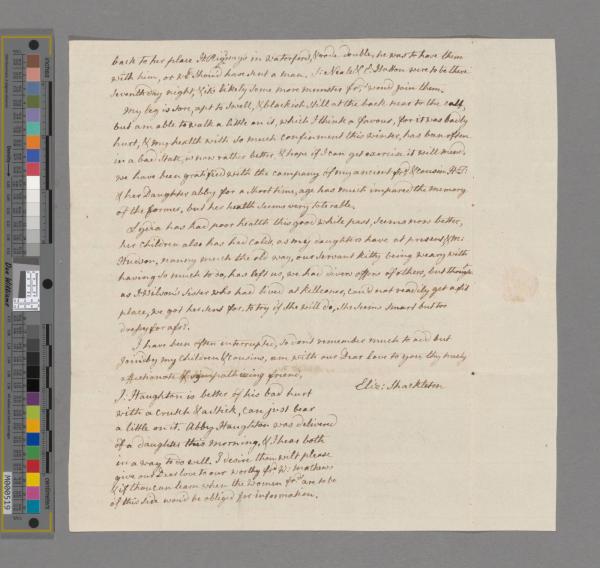 back to her place Jt Ridgway's in waterford, & rode double, he was to have them
with him, or wd. should have sent a man. S: Neale & E: Hatton were to be there
seventh day night, & its likely some more munster frds. woud join them.
My leg is sore, apt to swell, & blackish still at the back near to the calf,
but am able to walk a little on it, which I think a favour, for it was badly
hurt, & my health with so much confinement this winter, has ban often
in a bad state, is now rather better, & hope if I can get exercise it will mend.
we have been gratified with the company of my ancient frd. & cousin
& her Daughter abby for a short time, age has much impared the memory
of the former, but her health seems very tolerable.
Lydia has had poor health this good while past, seems now better,
her children also has had colds, as my daughters have at present,
Hudson, nanny much the old way, our servant kitty being weary with
having so much to do, has left us, we had divers offers of others, but though
as J: Wilson's sister who had lived at killconner, could not readily get a fit
place, we got her sent for, to try if she will do, she seems smart but too
dressy for a frd.
I have been often interrupted, so dont remember much to add but
Joind by my Children & cousins, am with our Dear Love to you thy truely
affectionate & sympathizing friend,
Eliz: Shackleton
J: Haughton is better of his bad hurt
with a crutch & a stick, can just bear
a little on it. Abby Haughton was delivered
of a daughter this morning, & I hear both
in a way to do well. I desire thou wilt please
give our Dear love to our worthy frd. W: Mathews
& if thou can learn when the women frds. are to be
of this side woud be obliged for information.
Don Williams
inches
centimetres
M000519